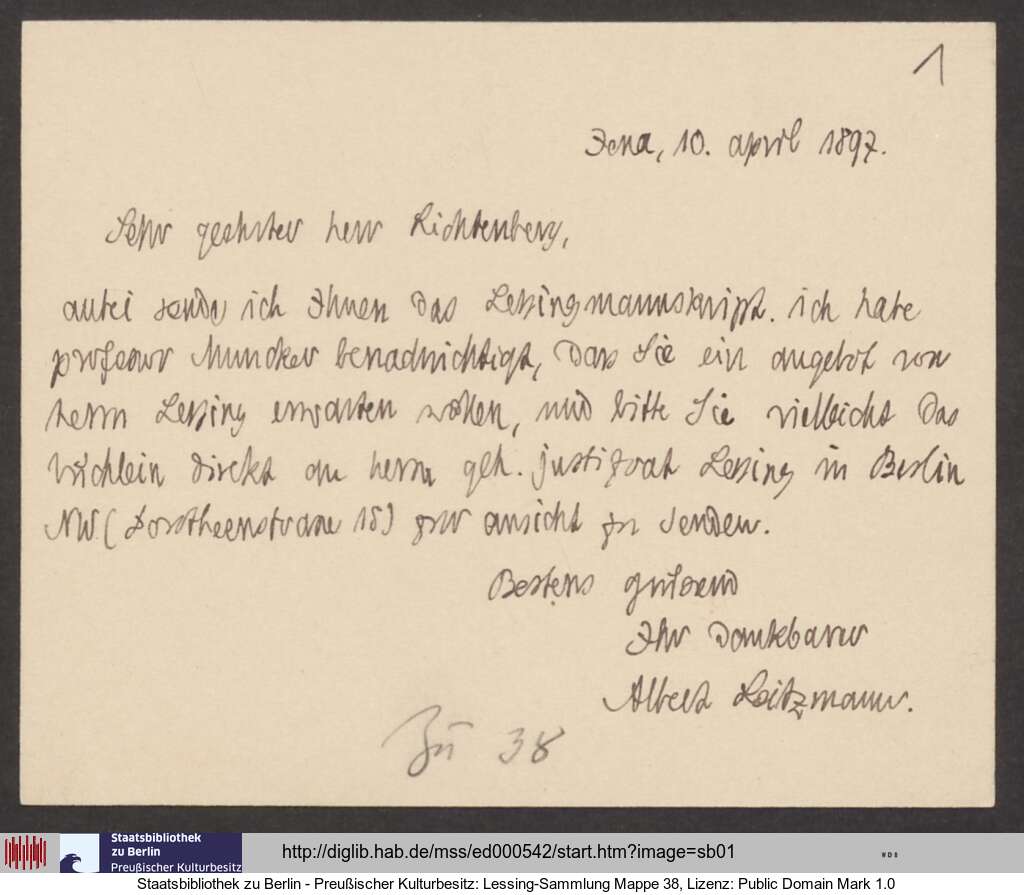 1
Jena, 10. april 1897.
Sehr geehrter herr Lichtenberg,
anbei sende ich Ihnen das Lessingmanuskript. ich habe
professor Muncker benachrichtigt, dass Sie ein angebot von
herrn Lessing erwarten wollen, und bitte Sie vielleicht das
büchlein direkt an herrn geh. justizrat Lessing in Berlin
NW. (Dorotheenstrasse 15) zur ansicht zu senden.
Bestens grüssend
Ihr dankbarer
Albert Leitzmann.
Zu 38
Staatsbibliothek
zu Berlin
Preußischer Kulturbesitz
http://diglib.hab.de/mss/ed000542/start.htm?image=sb01
WDB
Staatsbibliothek zu Berlin - Preußischer Kulturbesitz: Lessing-Sammlung Mappe 38, Lizenz: Public Domain Mark 1.0